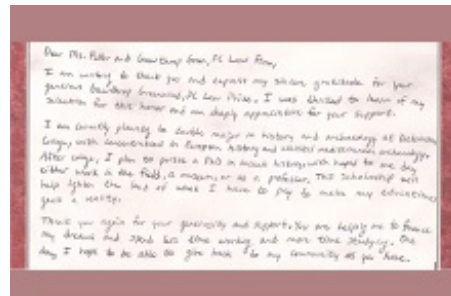 Dear Ms. Fuller and
I am writing to thank you and express my sincere gratitude for your
generous PC Law Prize. I was thrilled to learn of my
selection for this honor and am deeply appreciative for your support.
I am currently planning to double major in history and archaeology at Dickinson
College, with concentrations in European history and classical mediterranean archaeology.
After college, I plan to pursue a PhD in ancient history with hopes to one day
either work in the field, a museum, or as a professor. This scholarship will
help lighten the load of what I have to pay to make my educational
goals a reality.
Thank you again for your generosity and support. You are helping me to finance
my dreams and spend less time working and more time studying. One
day I hope to be able to give back to my community as you have.